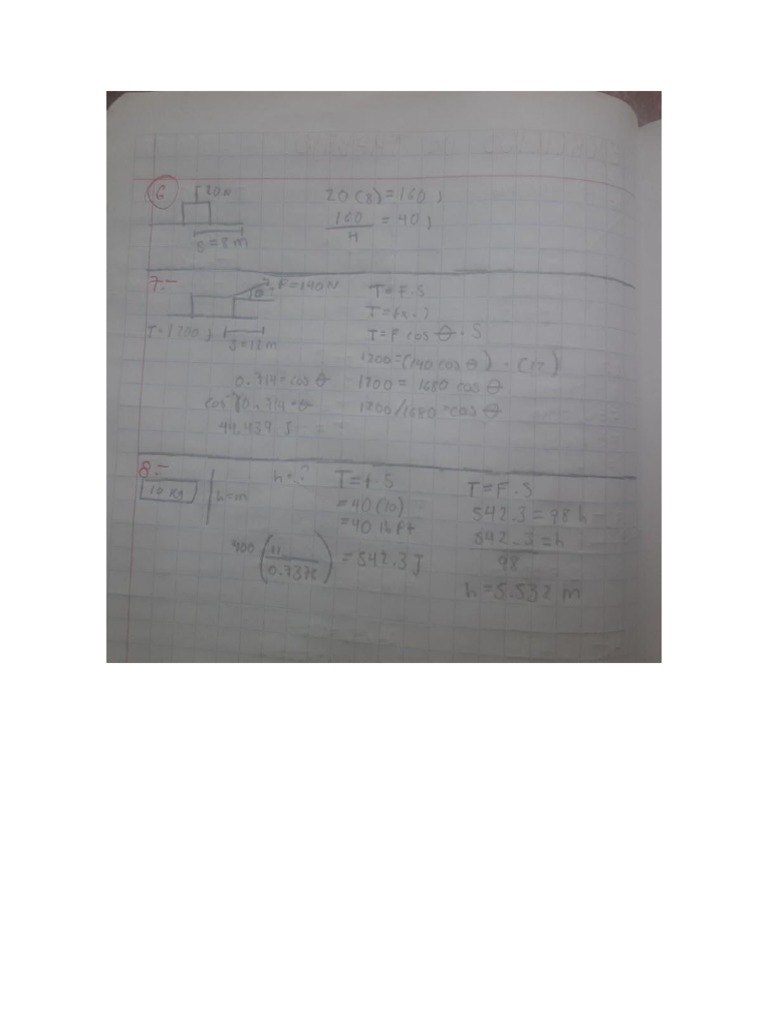 6
20N
S=8m
20(8)=160 J
160/4 = 40 J
7.-
F=140N
T=1200 J
S=12m
T=F.S
T=F cos θ . S
1200=(140 cos θ) . (12)
1200 = 1680 cos θ
1200/1680 = cos θ
0.714=cos θ
8.-
10 kg
h=m
h=?
T=f.S
=40(10)
=40 lb ft
400 ( / 0.7376) = 542.3 J
T=F.S
542.3=98 h
542.3 =h
98
h=5.532 m